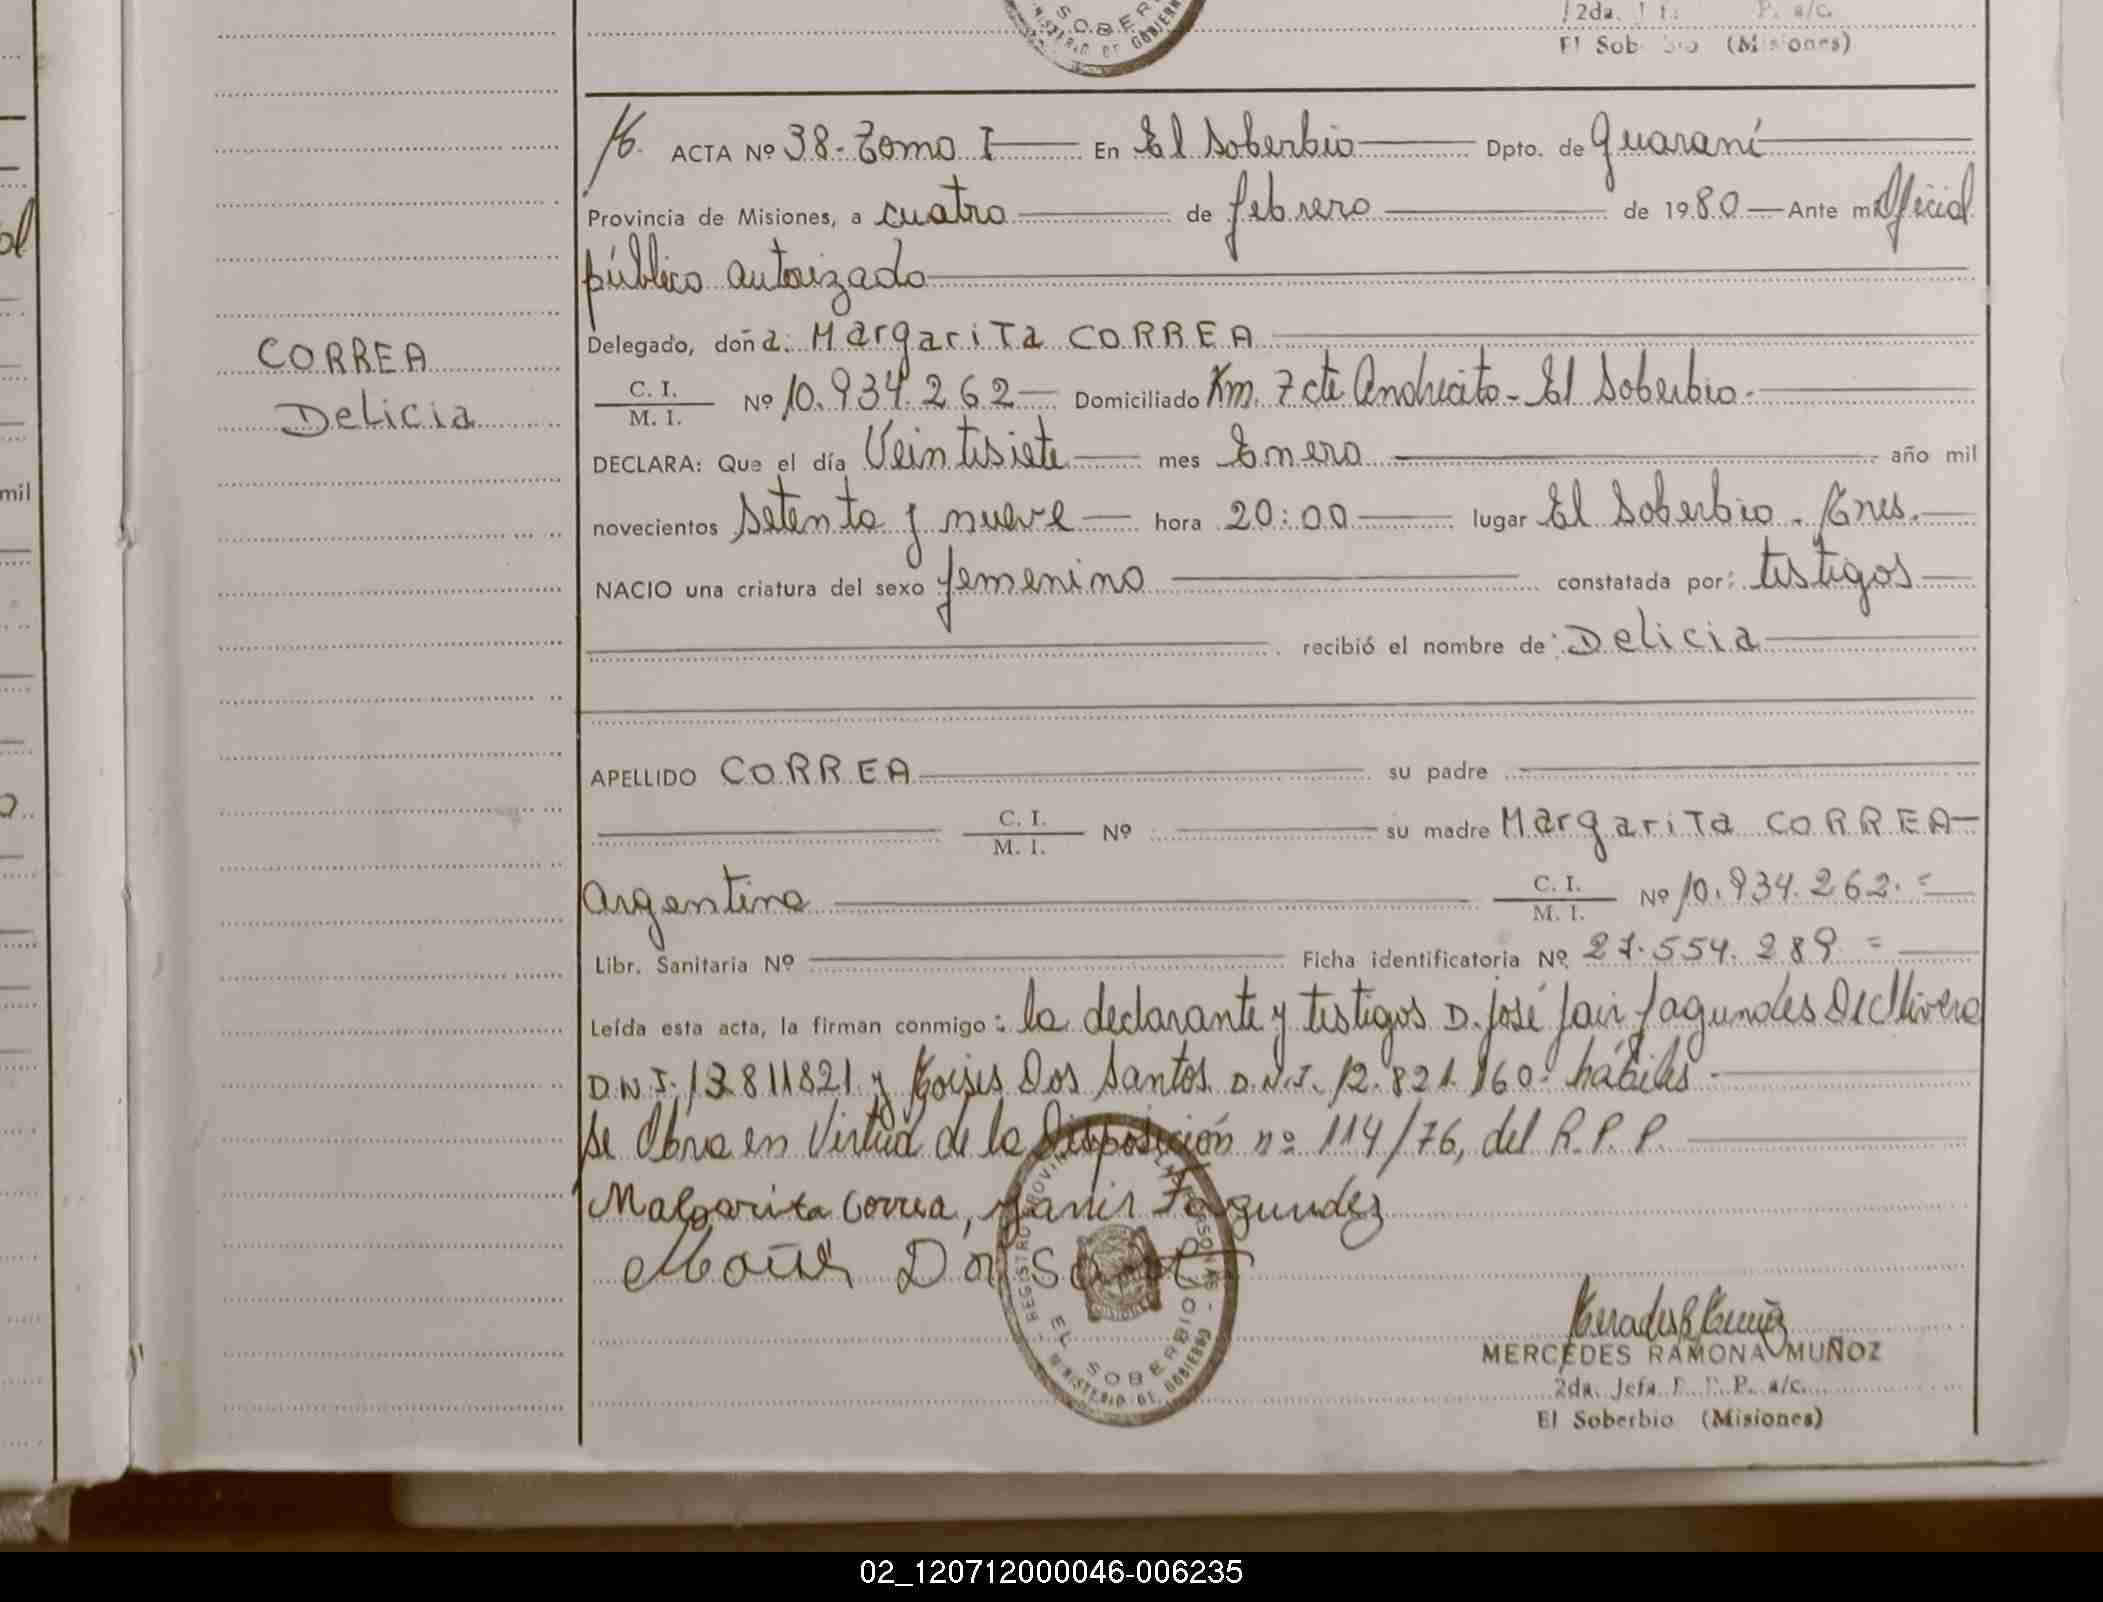 SOBER
MINISTERIO DE GOBIERNO
2da. P. a/c.
El Soberbio (Misiones)
16. ACTA Nº 38-Tomo I En El Soberbio Dpto. de Guaraní
Provincia de Misiones, a cuatro de febrero de 1980 Ante mi Oficial
público autorizado
Delegado, doña: Margarita CORREA
CORREA
Delicia
C. I.
M. I. Nº 10.934.262 Domiciliado Km. 7 cte Andrecito - El Soberbio.
DECLARA: Que el día Veintisiete mes Enero año mil
novecientos setenta y nueve hora 20:00 lugar El Soberbio - Mnes.
NACIO una criatura del sexo femenino constatada por: testigos
recibió el nombre de: Delicia
APELLIDO CORREA su padre
C. I.
M. I. Nº su madre Margarita CORREA
argentina C. I.
M. I. Nº 10.934.262. =
Libr. Sanitaria Nº Ficha identificatoria Nº 27.554.289 =
Leída esta acta, la firman conmigo: la declarante y testigos D. José Jair Fagundes De Olivera
D.N.I. 13811821 y Moises Dos Santos D.N.I. 12.821.160. hábiles
se Obra en Virtud de la Disposición nº 114/76, del R.P.P.
Malgarita Correa, Fagundez
REGISTRO PROVINCIAL PERSONAS
EL SOBERBIO
MINISTERIO DE GOBIERNO
MERCEDES RAMONA MUÑOZ
2da. Jefa R. P. P. a/c.
El Soberbio (Misiones)
ol
mil
02_120712000046-006235